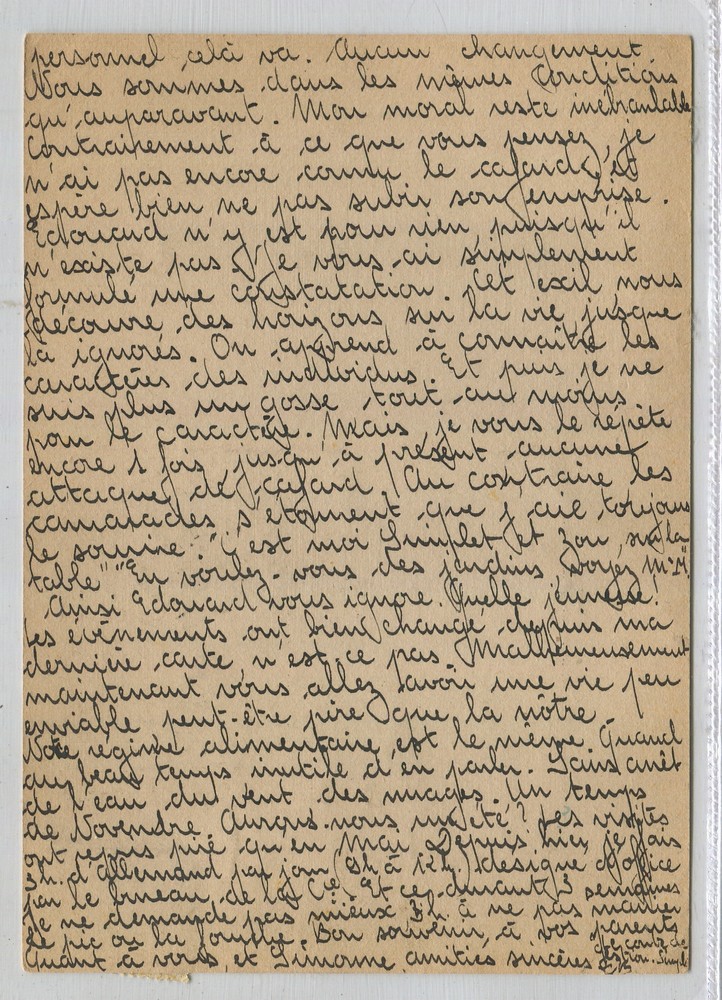 personnel celà va. Aucun changement
Nous sommes dans les mêmes conditions
qu'auparavant. Mon moral reste inébranlable
Contrairement à ce que vous pensez, je
n'ai pas encore connu le cafard, et
espère bien ne pas subir son emprise.
Edouard n'y est pour rien puisqu'il
n'existe pas. Je vous ai simplement
formulé une constatation. Cet exil nous
découvre des horizons sur la vie jusque
là ignorés. On apprend à connaître les
caractères des individus. Et puis je ne
suis plus un gosse tout au moins
pour le caractère. Mais je vous le répète
encore 1 fois, jusqu'à présent aucune
attaque de cafard. Au contraire les
camarades s'étonnent que j'aie toujours
le sourire. "C'est moi Simplet et zou, sur la
table" "En voulez-vous des jardins voyez Mr M"
Ainsi Edouard vous ignore. Quelle jeunesse!
Les évènements ont bien changé depuis ma
dernière carte n'est-ce pas. Malheureusement
maintenant vous allez avoir une vie peu
enviable peut-être pire que la nôtre.
Notre régime alimentaire est le même. Quand
au beau temps inutile d'en parler. Sans arrêt
de l'eau du vent des nuages. Un temps
de Novembre. Aurons-nous un été? Les visites
ont repris pire qu'en Mai. Depuis hier je fais
3h. d'Allemand par jour (9h à 12h) désigné d'office
par le bureau de la Cie. Et ce, durant 3 semaines
Je ne demande pas mieux 3h. à ne pas manier
le pic ou la fourche. Bon souvenir à vos parents
Quant à vous et Simonne amitiés sincères